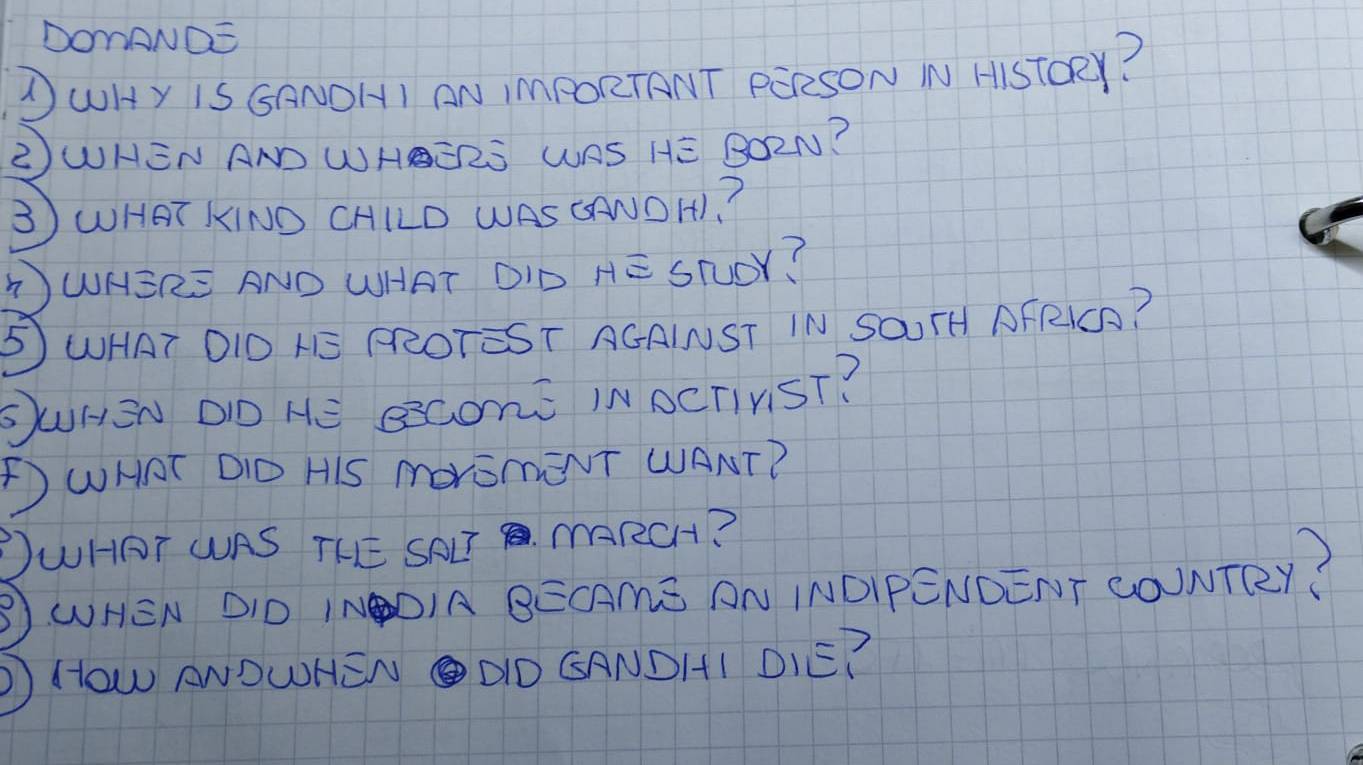 DOMANDE
1) WHY IS GANDHI AN IMPORTANT PERSON IN HISTORY?
2) WHEN AND WHERE WAS HE BORN?
3) WHAT KIND CHILD WAS GANDHI?
4) WHERE AND WHAT DID HE STUDY?
5) WHAT DID HE PROTEST AGAINST IN SOUTH AFRICA?
6) WHEN DID HE BECOME IN ACTIVIST?
7) WHAT DID HIS MOVEMENT WANT?
) WHAT WAS THE SALT MARCH?
) WHEN DID INDIA BECAME AN INDIPENDENT COUNTRY?
) HOW AND WHEN DID GANDHI DIE?